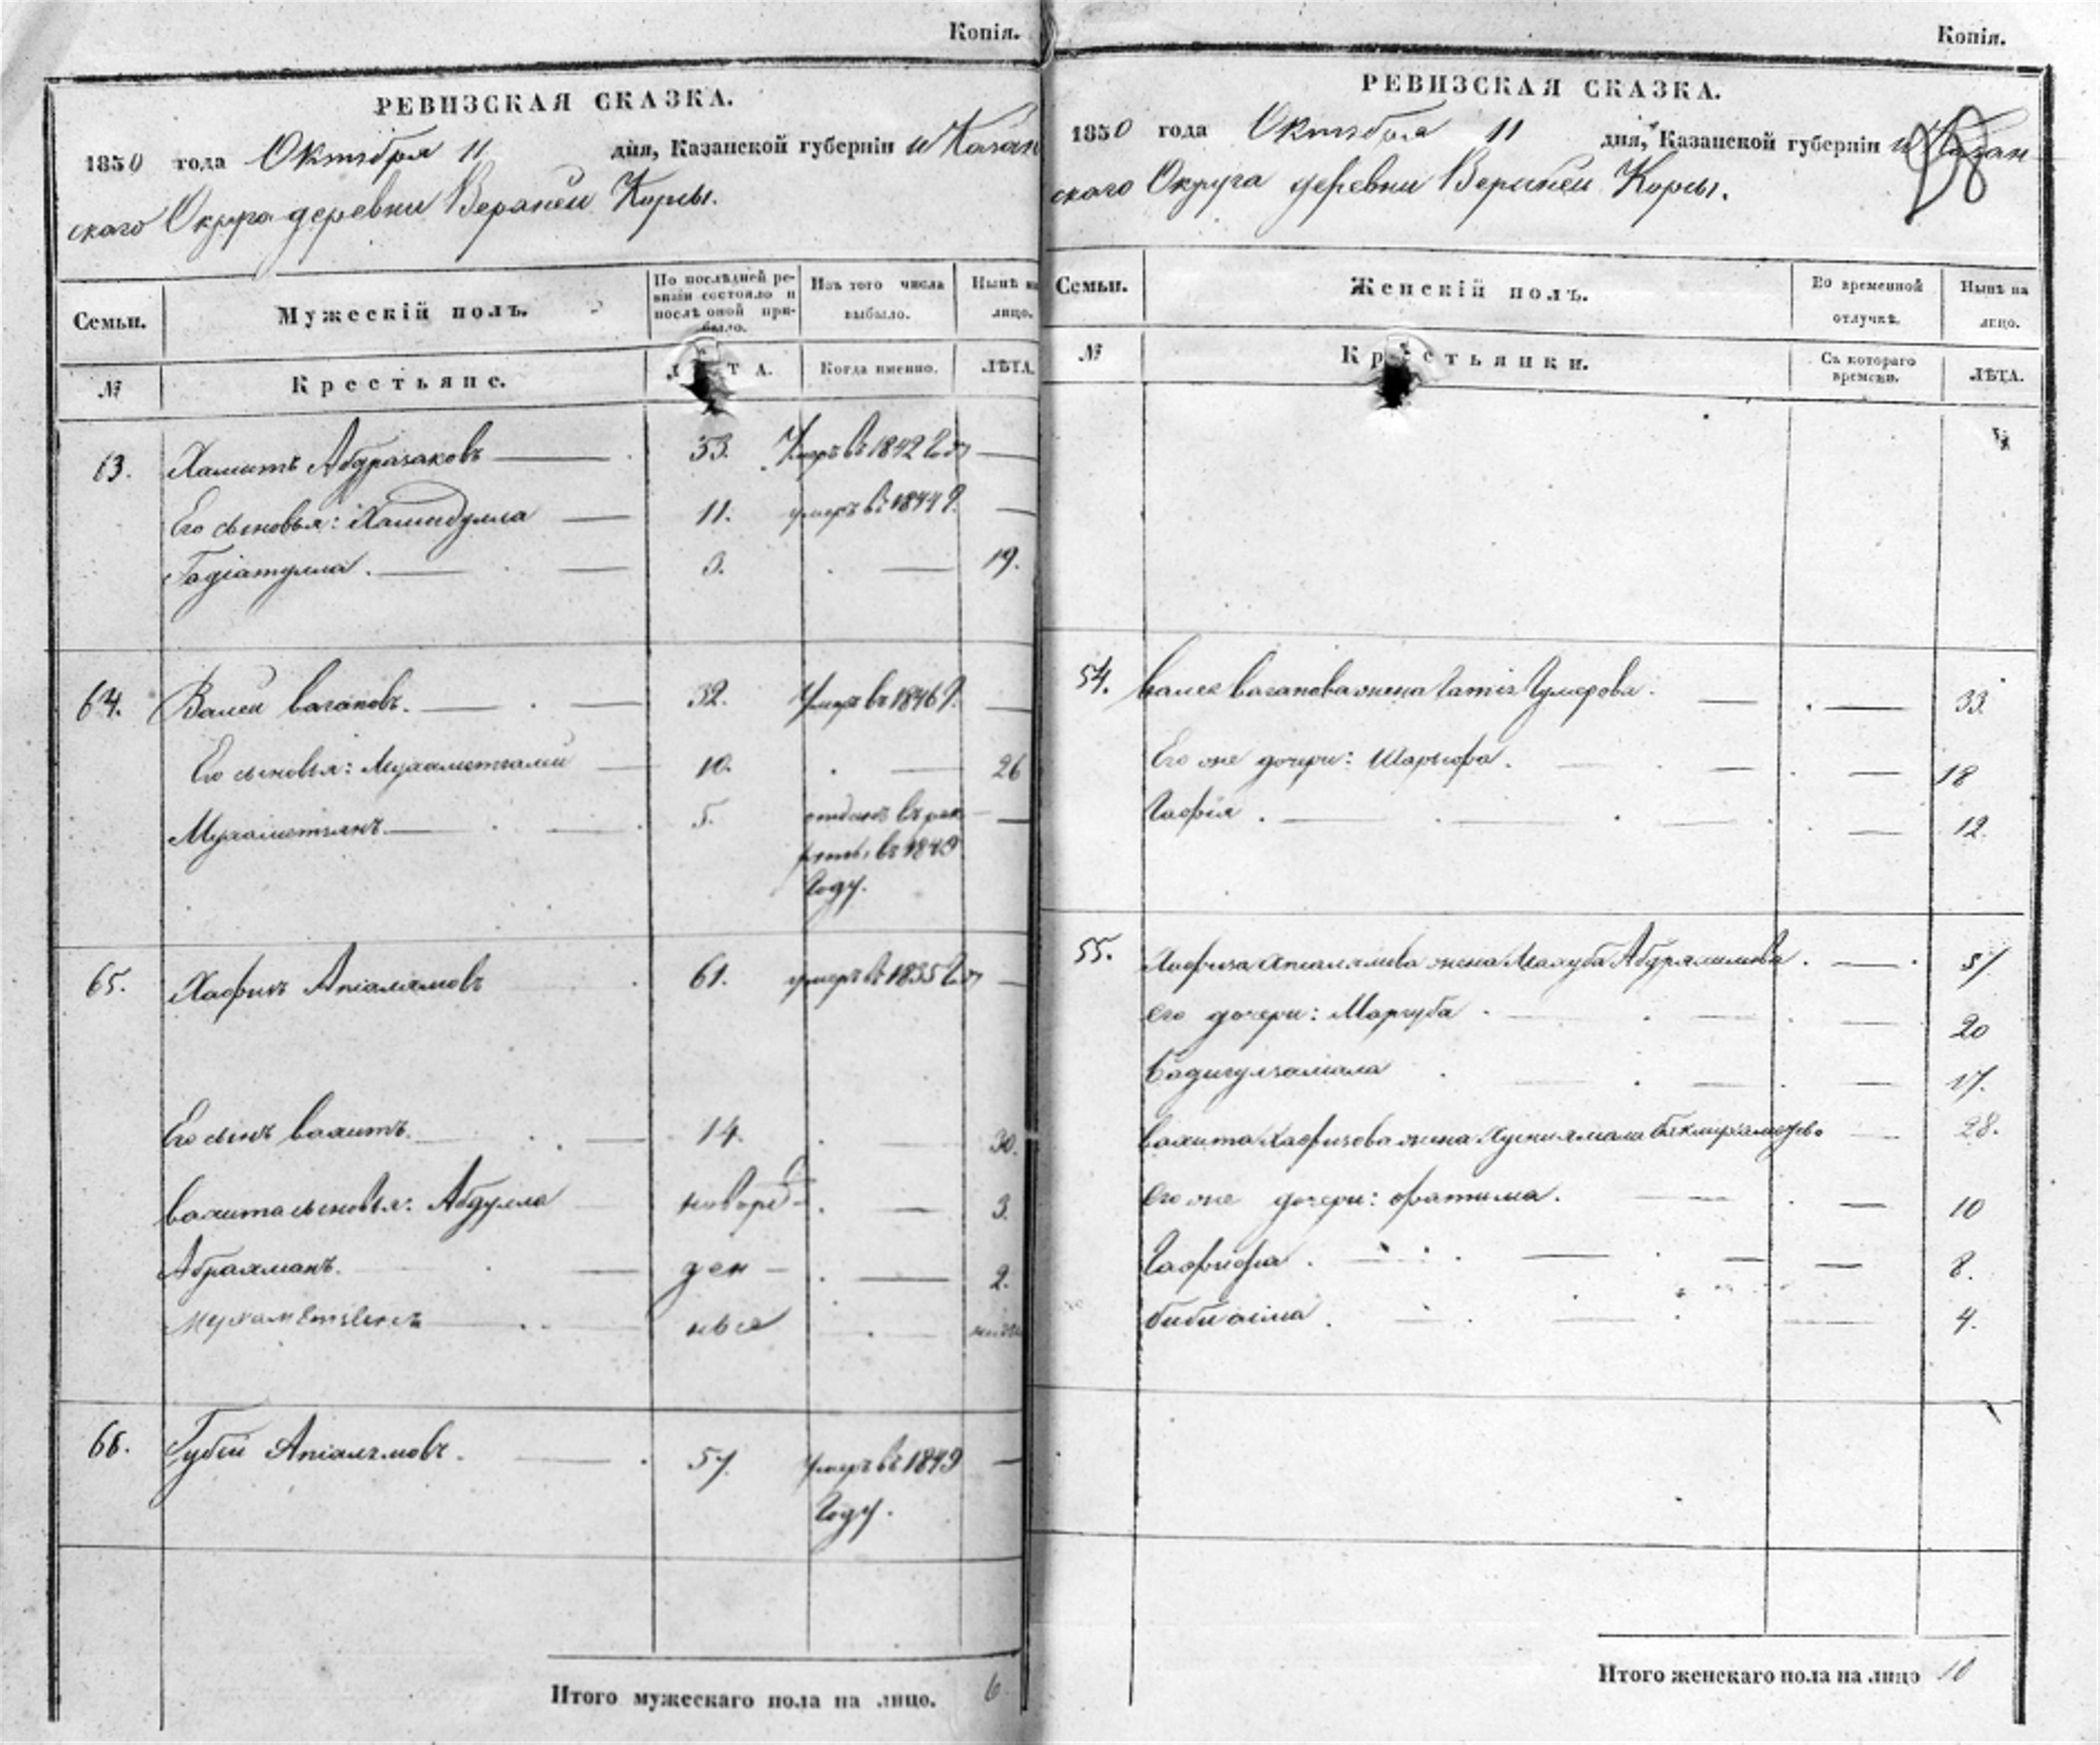 Копія.
РЕВИЗСКАЯ СКАЗКА.
1850 года Октября 11 дня, Казанской губерніи и Казан
скаго Округа деревни Верхней Корсы.
Семьи.
Мужескій полъ.
По послѣдней ре-
визіи состояло и
послѣ оной при-
было.
Изъ того числа
выбыло.
Нынѣ на
лицо.
№
Крестьяне.
Л Т А.
Когда именно.
ЛѢТА.
63. Хамитъ Абдразаковъ 33. Умеръ въ 1842 Году
Его сыновья: Хамидулла 11. умеръ въ 1844 Г.
Гадіатулла. 3. 19.
64. Валей Вагаповъ. 32. Умеръ въ 1846 Г.
Его сыновья: Мухаметгалей 10. 26
Мухаметзянъ 5. отданъ въ рек
руты въ 1849
Году.
65. Хафизъ Апсалямовъ 61. умеръ въ 1835 Году
Его сынъ Вахитъ. 14. 30.
Вахита сыновья: Абдулла новорож 3.
Абрахманъ. ден 2.
ныя
66. Губей Апсалямовъ. 57. Умеръ въ 1849
Году.
Итого мужескаго пола на лицо. 6.
Копія.
РЕВИЗСКАЯ СКАЗКА.
1850 года Октября 11 дня, Казанской губерніи и Казан
скаго Округа деревни Верхней Корсы.
Семьи.
Женскій полъ.
Во временной
отлучкѣ.
Нынѣ на
лицо.
№
Крестьянки.
Съ котораго
времени.
ЛѢТА.
54. Валея Вагапова жена Гумерова. 33.
Его же дочери: 18
Гафія. 12.
55. Хафиза Апсалямова жена Махуба Абдрялимова. 57
его дочери: Маргуба 20
Бадигулзамала 17.
Вахита Хафизова жена Хуснизямала Бикмухаметова 28.
Его же дочери: Фатима. 10
8.
Биби 4.
Итого женскаго пола на лицо 10